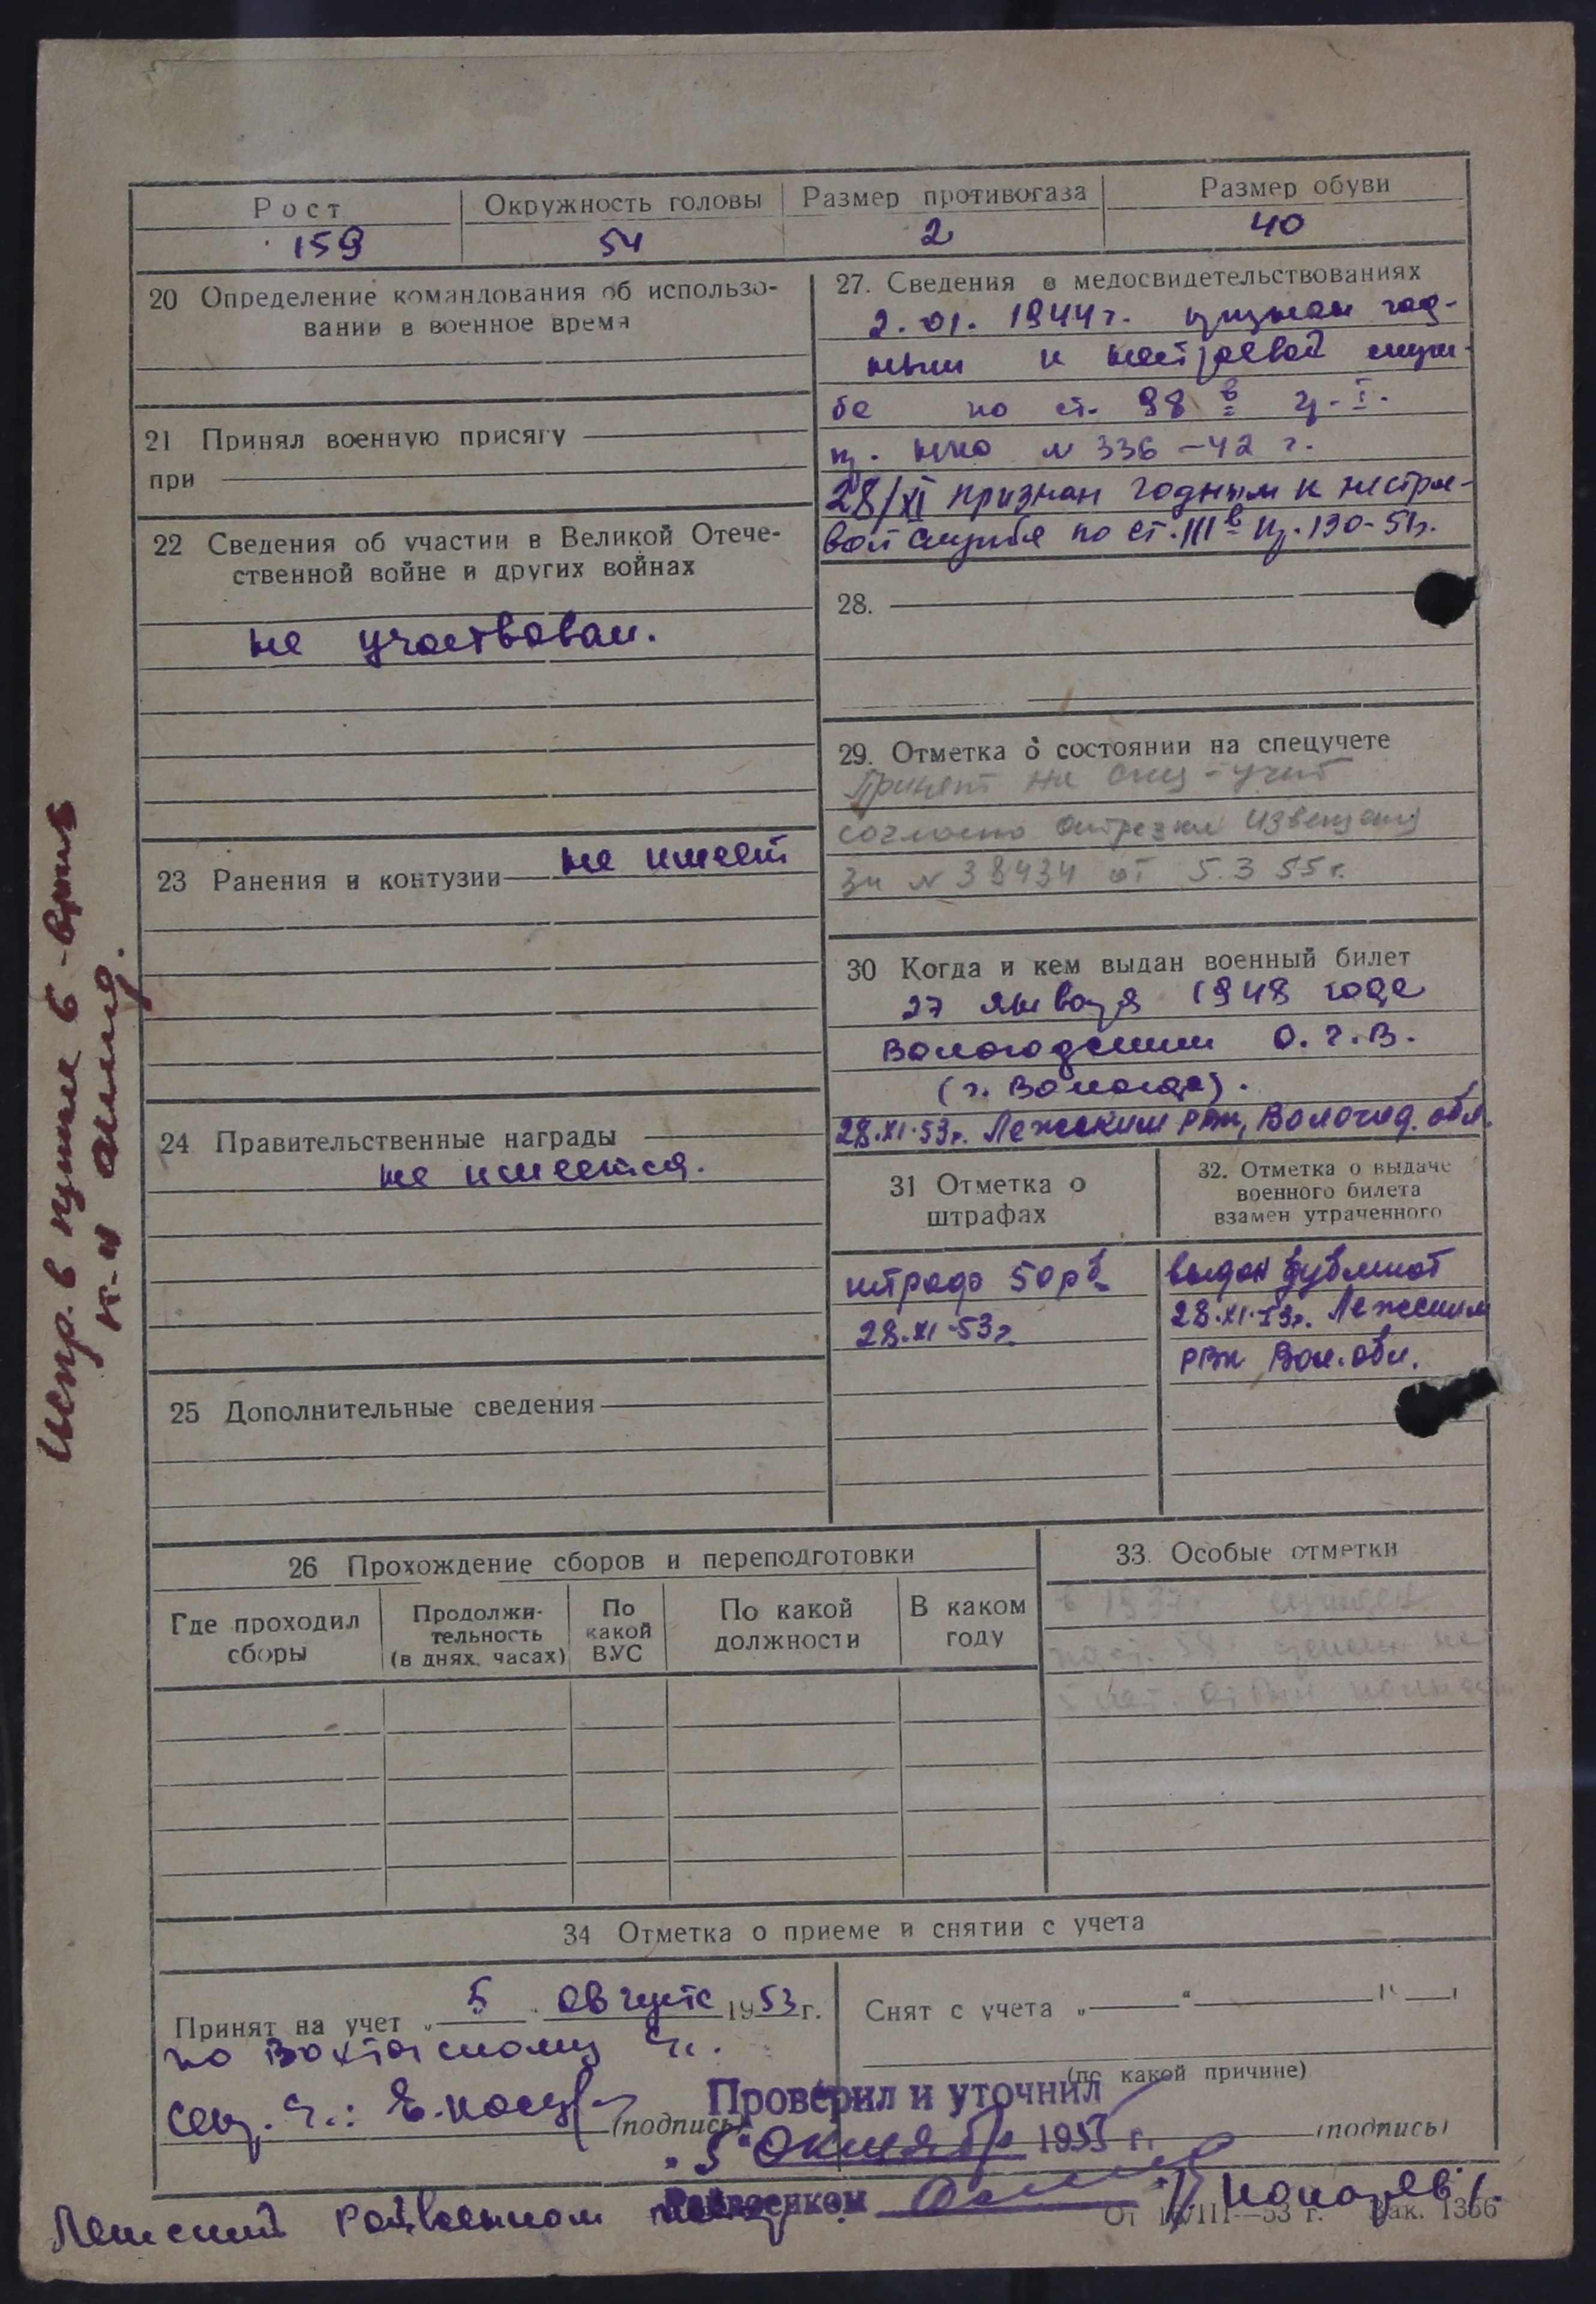 Рост Окружность головы Размер противогаза Размер обуви
159 54 2 40
20 Определение командования об использо-
вании в военное время
21 Принял военную присягу
при
22 Сведения об участии в Великой Отече-
ственной войне и других войнах
не участвовал.
23 Ранения и контузии не имеет
24 Правительственные награды
не имеется.
25 Дополнительные сведения
27. Сведения о медосвидетельствованиях
2.01.1944 г. признан год-
ным к нестроевой служ-
бе по ст. 98 в гр. I.
пр. НКО № 336-42 г.
28/XI признан годным к нестрое-
вой службе по ст. III в пр. 130-51г.
28.
29. Отметка о состоянии на спецучете
Принят на спец-учет
согласно отрезки извещения
за № 38434 от 5.3 55 г.
30 Когда и кем выдан военный билет
27 января 1948 года
Вологодским О.Г.В.
(г. Вологда).
28.XI.53г. Лежским РВК, Вологод. обл.
31 Отметка о
штрафах
штраф 50 рб
28.XI-53г.
32. Отметка о выдаче
военного билета
взамен утраченного
выдан дубликат
28.XI.53г. Лежским
РВК Вол. обл.
26 Прохождение сборов и переподготовки
Где проходил
сборы
Продолжи-
тельность
(в днях, часах)
По
какой
ВУС
По какой
должности
В каком
году
33. Особые отметки
в 1937г.
по ст. 58 на
5 лет.
34 Отметка о приеме и снятии с учета
Принят на учет „5" августа 1953 г.
по
(подпись)
Снят с учета „ " 19 г.
(по какой причине)
(подпись)
Проверил и уточнил
„5" октября 1955 г.
Райвоенком
Лежский Райвоенком
От /III—53 г. Зак. 1366
Испр. в